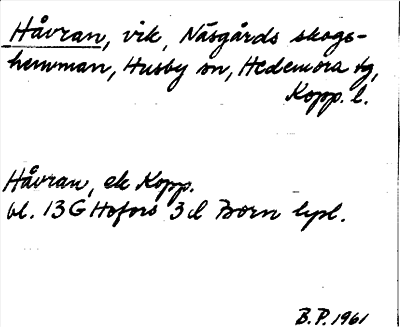 Håvran, vik, Näsgårds skogs-
hemman, Husby sn, Hedemora tg,
Kopp. l.
Håvran, ek Kopp.
bl. 13G Hofors 3d Born lpl.
B.P. 1961